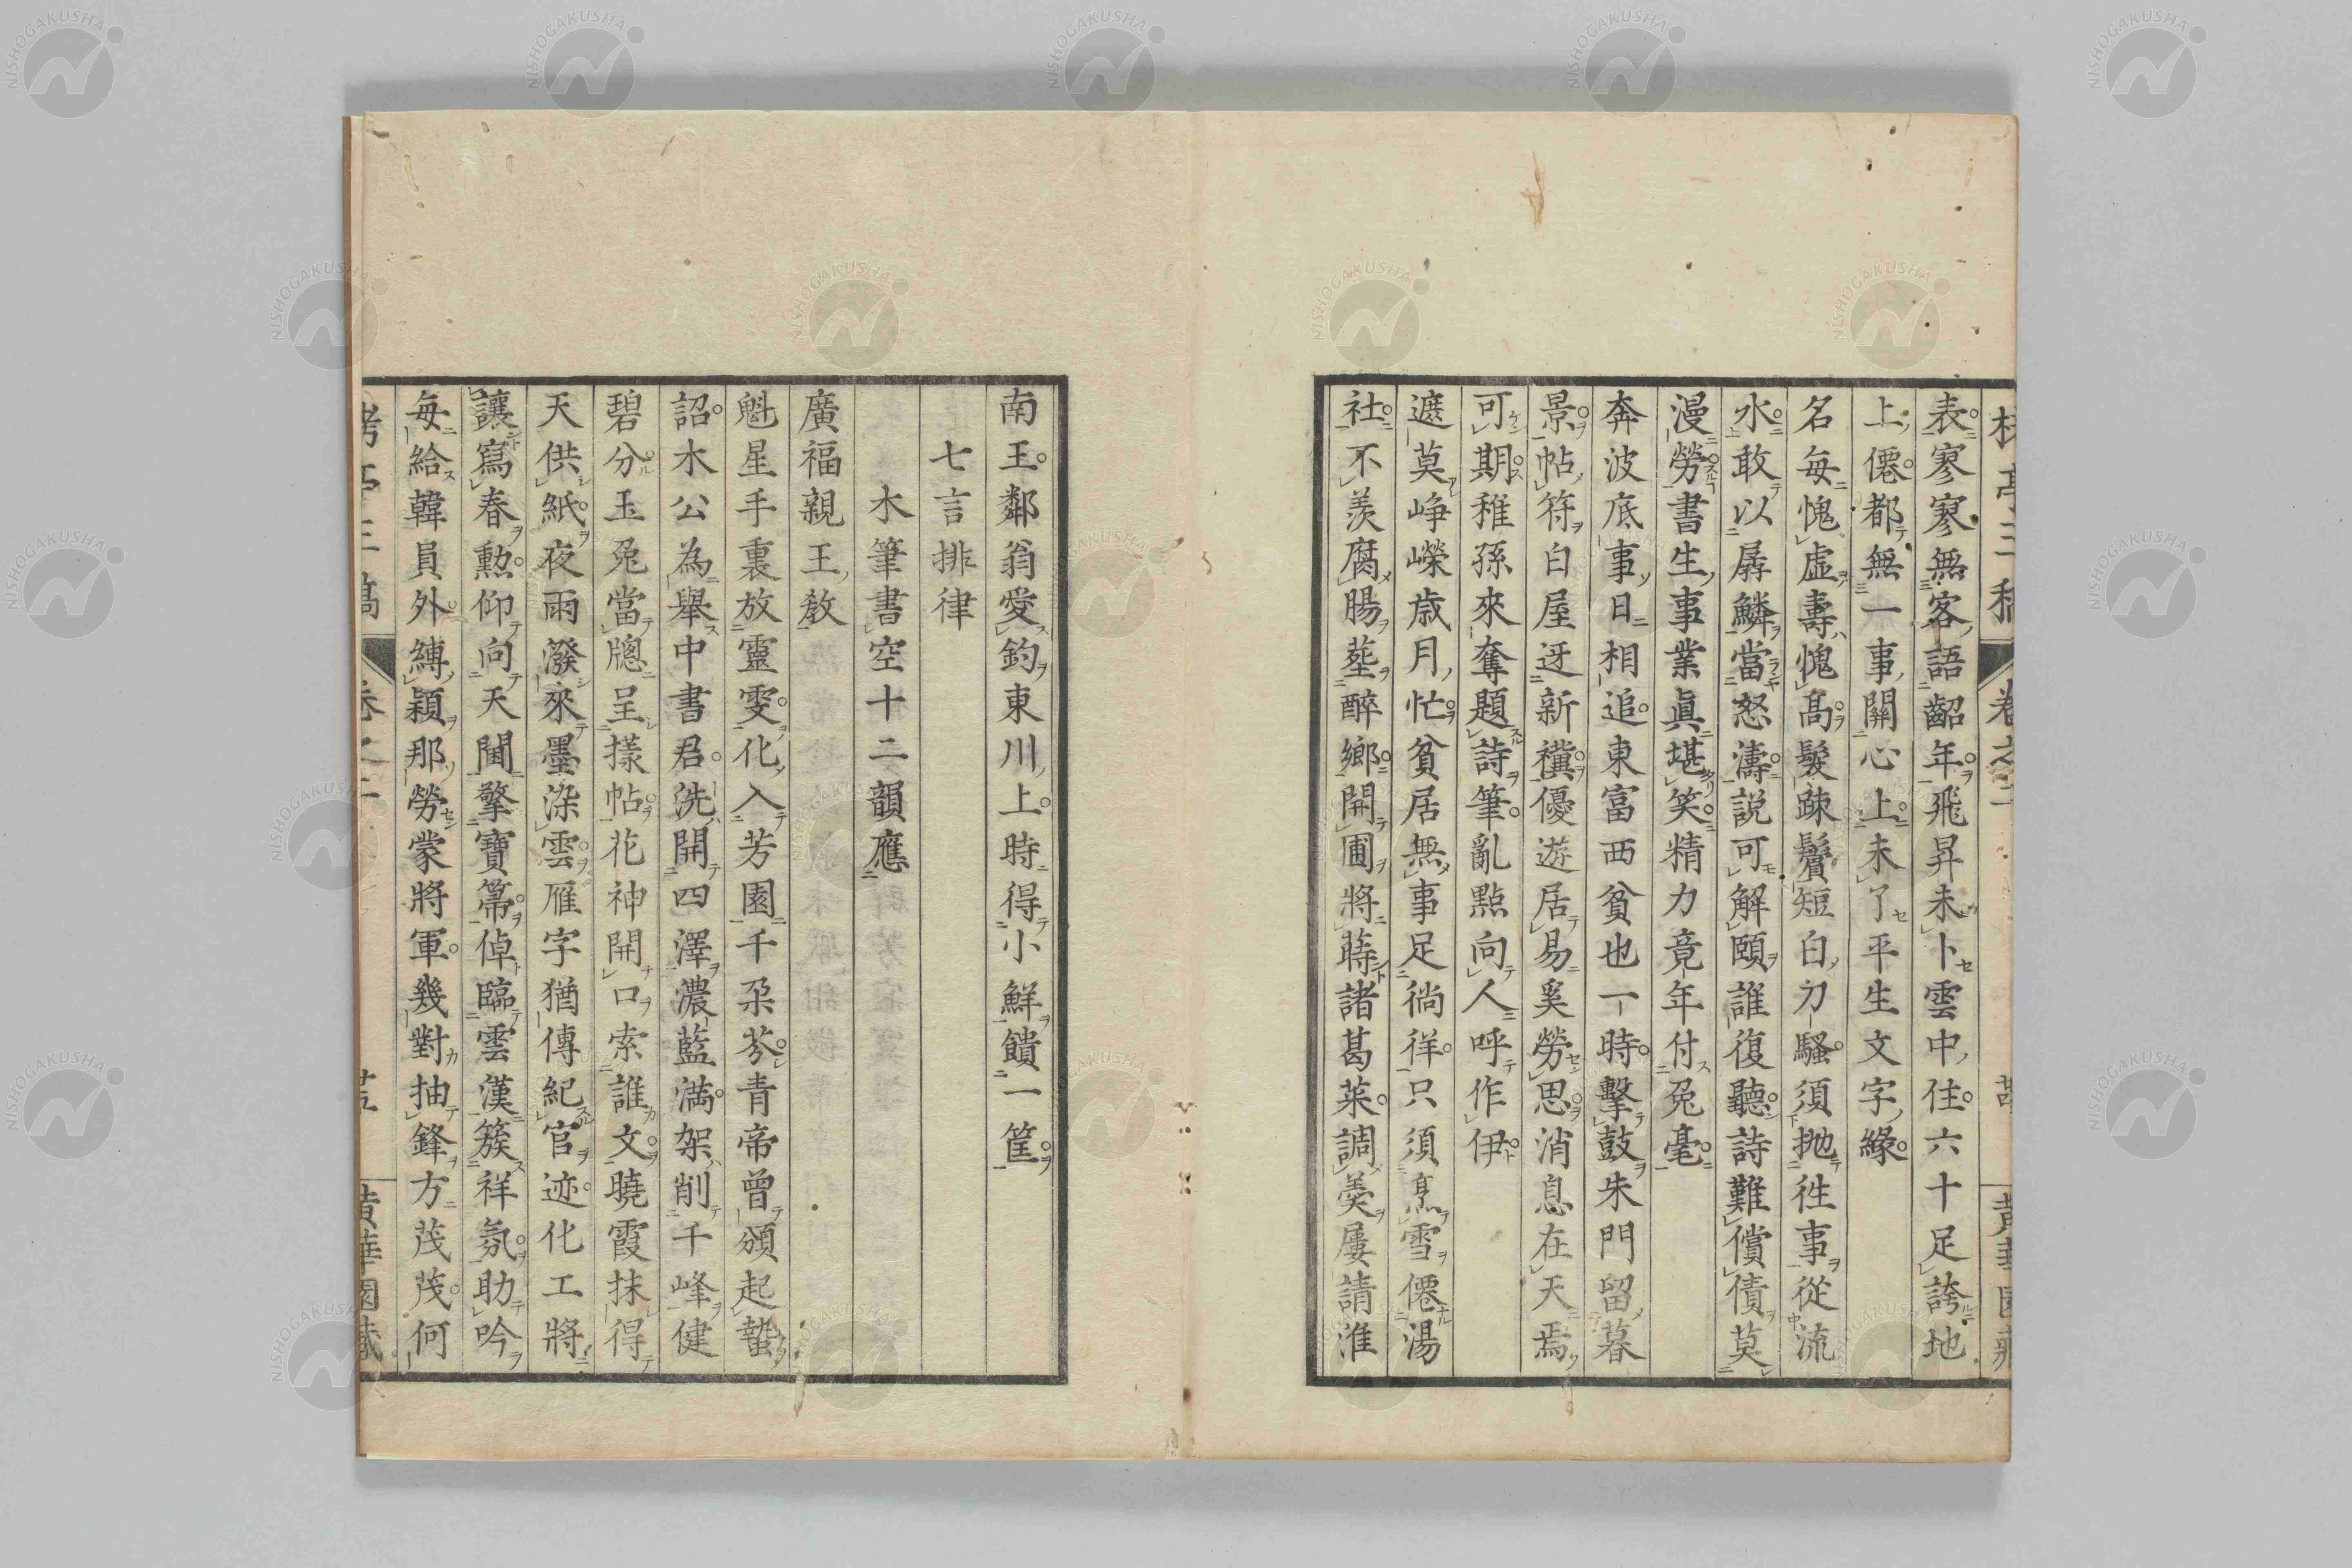 表寥寥無客語齠年飛昇未卜雲中住六十足誇地
上僊都無一事關心上未了平生文字緣
名每愧虛壽愧高髮疎鬢短白刀騷須拋徃事從流
水敢以孱鱗當怒濤說可解頤誰復聽詩難償債莫
漫勞書生事業眞堪笑精力竟年付兔毫
奔波底事日相追東富西貧也一時擊鼓朱門留暮
景帖符白屋迓新禩優遊居易奚勞思消息在天焉
可期稚孫來奪題詩筆亂點向人呼作伊
遮莫崢嶸歳月忙貧居無事足徜徉只須烹雪僊湯
社不羨腐腸塟醉鄉開圃將蒔諸葛菜調羮屢請淮
南王鄰翁愛釣東川上時得小鮮饋一筐
七言排律
木筆書空十二韻應
廣福親王敎
魁星手裏放靈雯化入芳園千朶芬青帝曾頒起蟄
詔木公為舉中書君洗開四澤濃藍滿架削千峰健
碧分玉兔當牕呈㨾帖花神開口索誰文曉霞抹得
天供紙夜雨潑來墨染雲雁字猶傳紀官迹化工將
讓寫春勲仰向天閫擎寶箒倬臨雲漢簇祥氛助吟
每給韓員外縛穎那勞蒙將軍幾對抽鋒方茂茂何
卷之二
黃華園藏
NISHOGAKUSHA